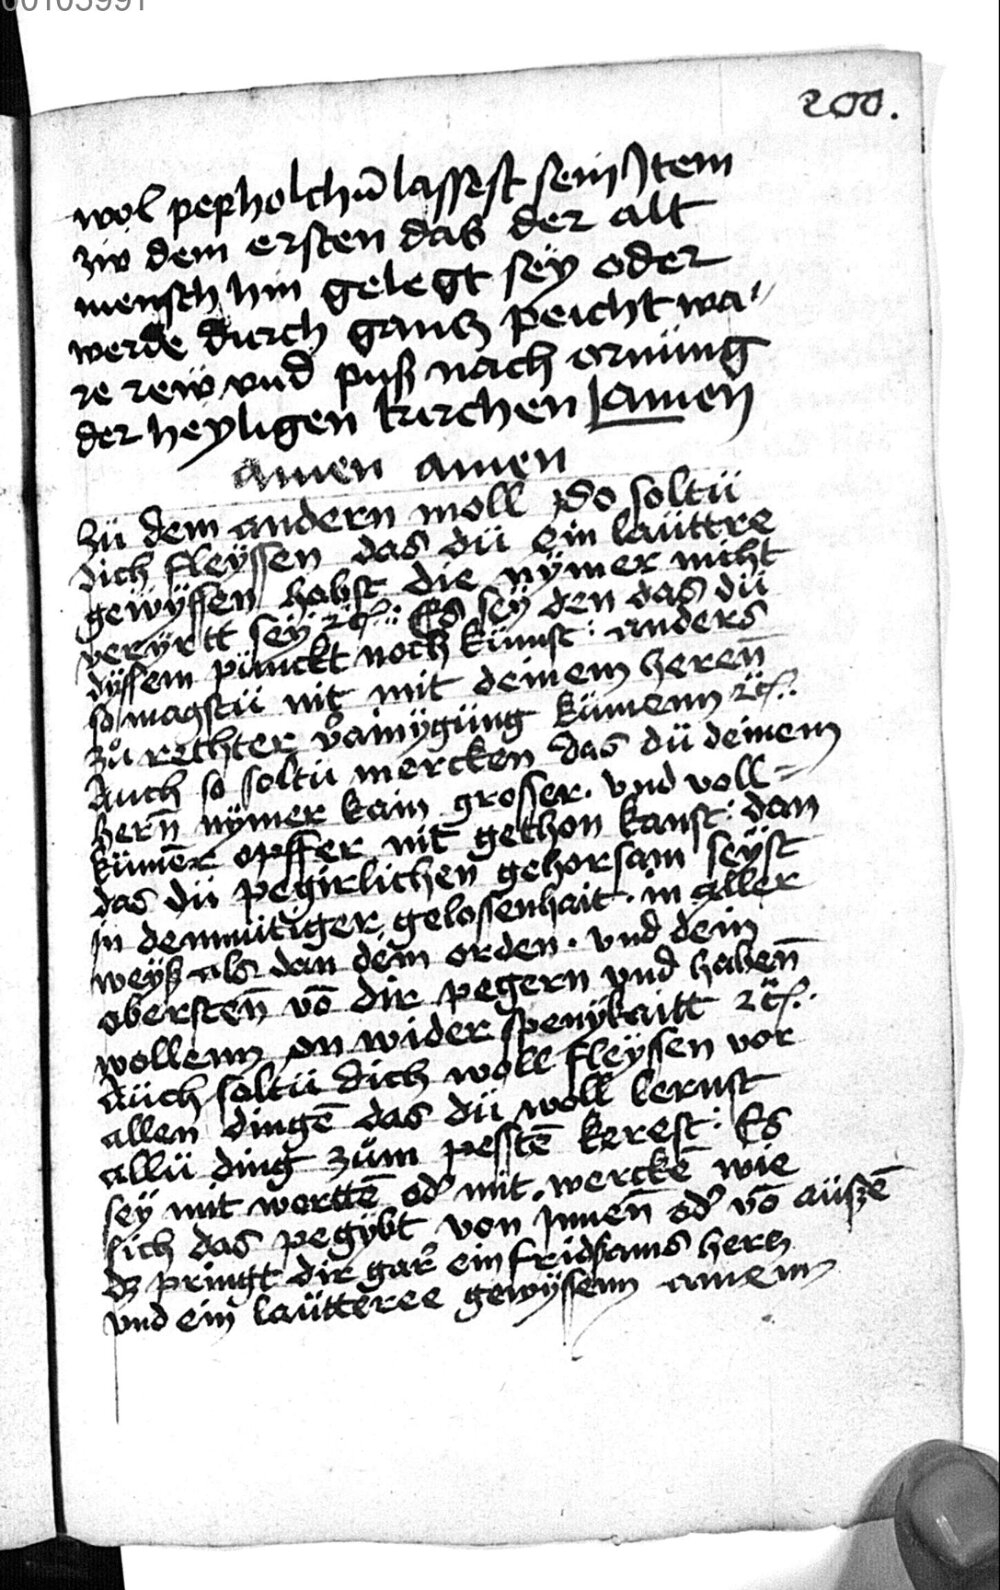 00103991
200.
wol pepholchn̄ lassest sein Item
zw dem ersten das der alt
mensch hin gelegt sey oder
werde durch gantz peicht wa⸗
re rew vnd puß nach ornung
der heyligen kirchen Amen
amen amen
Zü dem andern moll So soltü
dich fleyssen das dü ein lauttre
gewyssen habst die nymer nicht
veryrtt sey ⁊c̈. Es sey den das dü
dyssem pünckt noch künst: anders
so magstü nit mit deinem heren̄
zů rechter v̊ainygüng kümenn ⁊c̈.
Auch so soltü mercken das dü deinem
hern̄ nymer kain grosser. vnd voll⸗
kümēr opffer nit gethon kanst: dan
das dü pegirlichen gehorsam seyst
in demmütiger, gelossenhait. in aller
weyß als dan dem orden. vnd dein
obersten̄ vō dir pegern vnd haben̄
wollenn on wider spenykaitt ⁊c̈.
Aüch soltü dich woll fleyssen vor
allen dingē das dü woll lernst
allü ding zům pesstē kerest: Es
sey mit worttē od' mit. werckē wie
sich das pegybt von Innen̄ od' vō aüszē
dz pringt dir gar ein fridsams hertz
vnd ein laütteree gewyssenn amenn